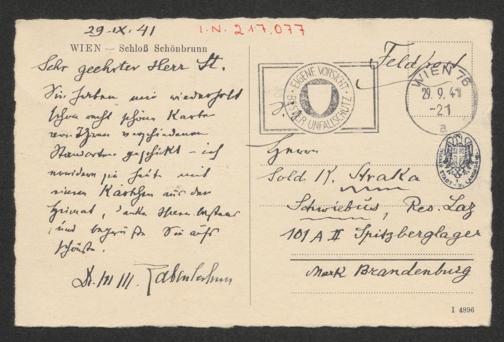 29.IX.41
I.N. 217.077
WIEN — Schloß Schönbrunn
Sehr geehrter Herr St.
Sie haben mir wiederholt
schon recht schöne Karten
von Ihren verschiedenen
Standorten geschickt – ich
sie heute mit
einem Kärtchen aus der
Heimat, danke Ihnen bestens
und begrüße Sie aufs
schönste.
Dr. M
Feldpost
EIGENE VORSICHT
BESTER UNFALLSCHUTZ
WIEN 76
29. 9. 41
-21
a
Herrn
Sold K. Straka
Schwiebus, Res. Laz
101 A II Spitzberglager
Mark Brandenburg
I 4896